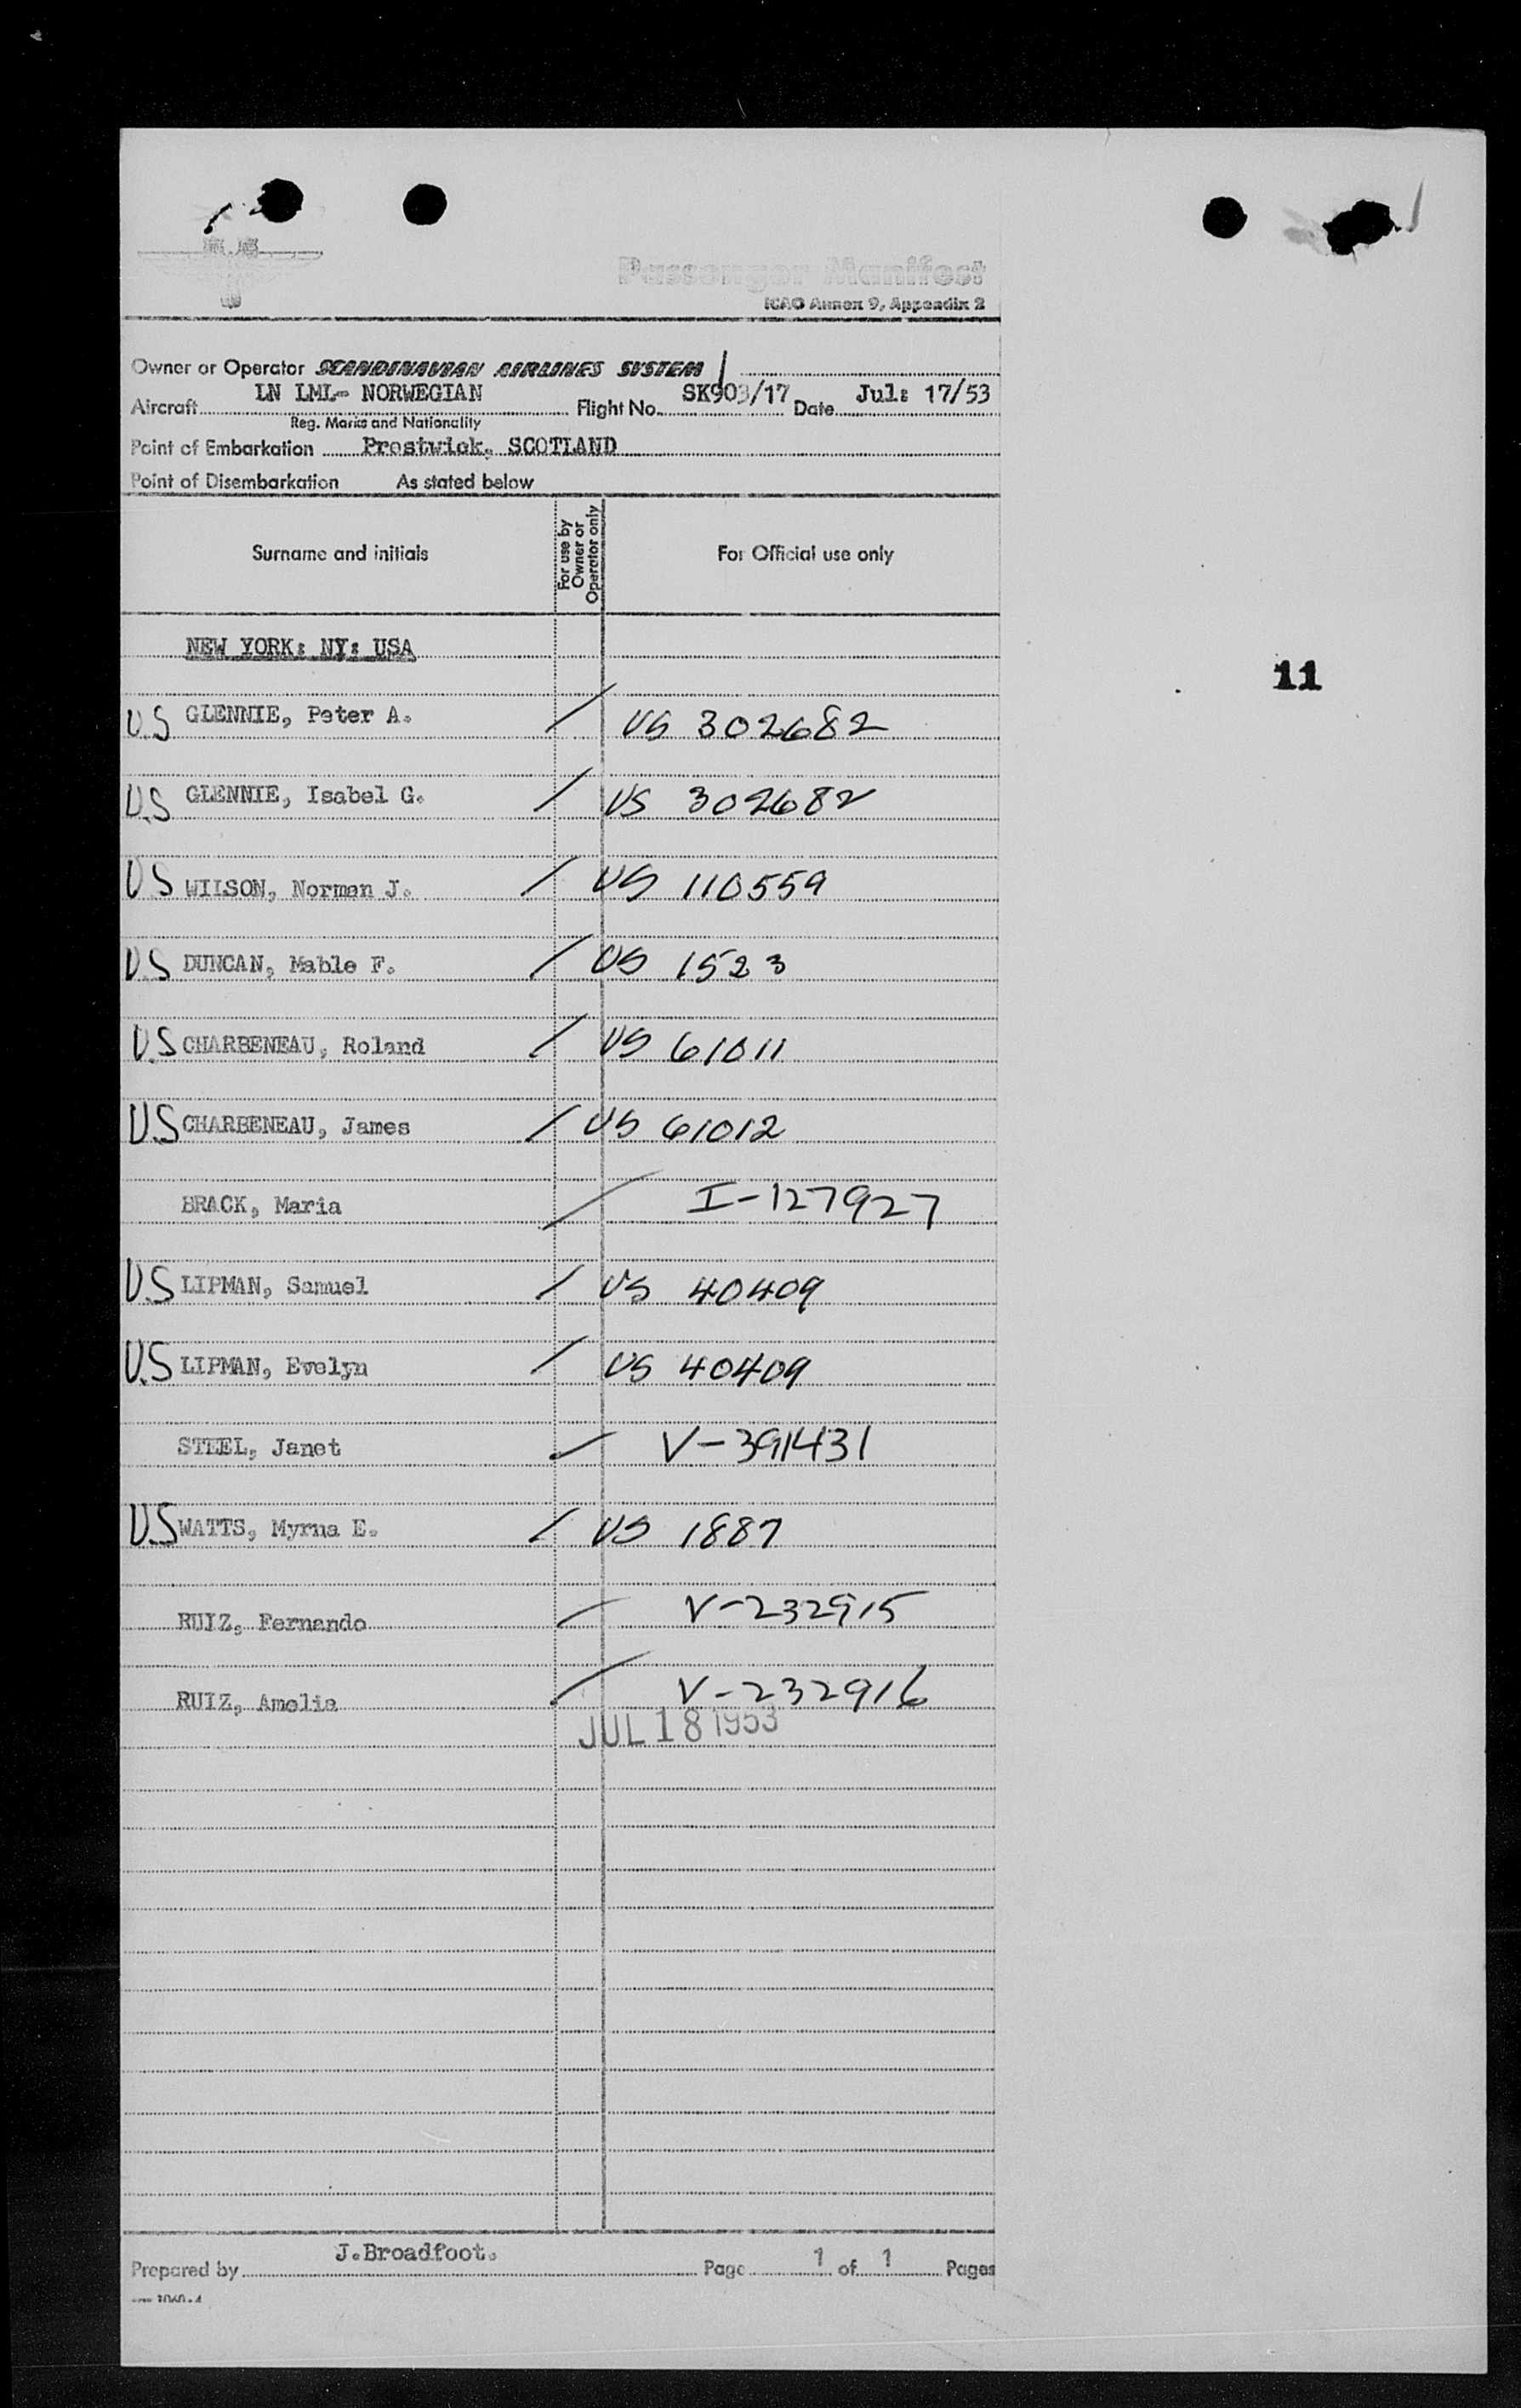 Passenger Manifest
ICAO Annex 9, Appendix 2
Owner or Operator SCANDINAVIAN AIRLINES SYSTEM
Aircraft LN LML- NORWEGIAN Flight No. SK903/17 Date Jul: 17/53
Reg. Marks and Nationality
Point of Embarkation Prestwick, SCOTLAND
Point of Disembarkation As stated below
Surname and initials For use by Owner or Operator only For Official use only
NEW YORK: NY: USA
11
U.S GLENNIE, Peter A. / US 302682
U.S GLENNIE, Isabel G. / US 302682
U.S WILSON, Norman J. / US 110559
U.S DUNCAN, Mable F. / US 1523
U.S CHARBENEAU, Roland / US 61011
U.S CHARBENEAU, James / US 61012
BRACK, Maria / I-127927
U.S LIPMAN, Samuel / US 40409
U.S LIPMAN, Evelyn / US 40409
STEEL, Janet / V-391431
U.S WATTS, Myrna E. / US 1887
RUIZ, Fernando / V-232915
RUIZ, Amelia / V-232916
JUL 18 1953
Prepared by J.Broadfoot. Page 1 of 1 Pages